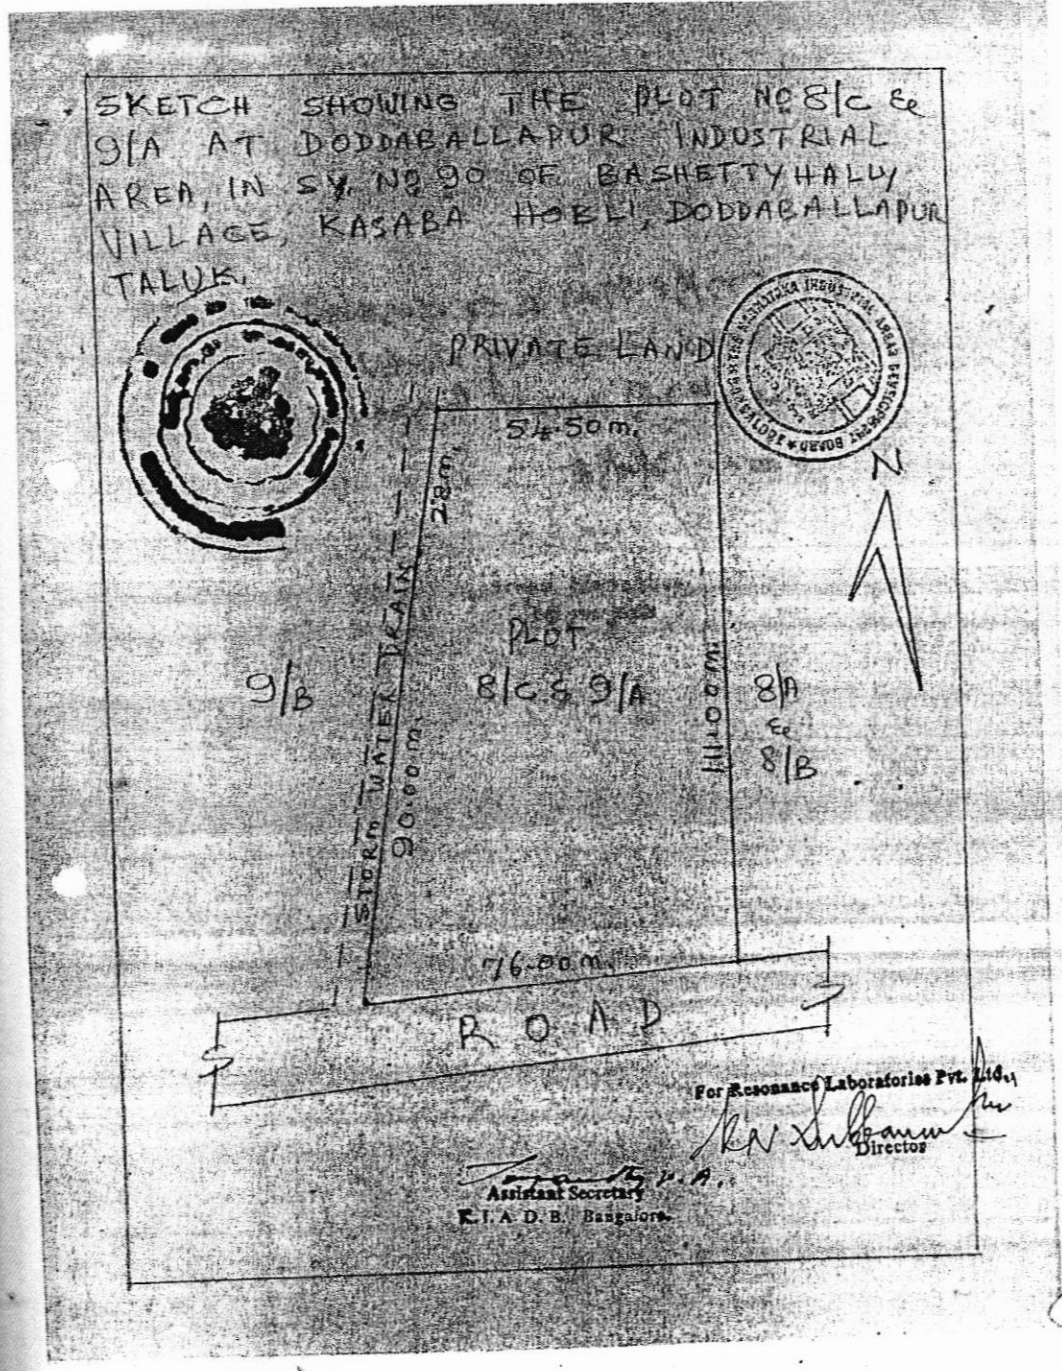 SKETCH SHOWING THE PLOT NO 8/C &
9/A AT DODDABALLAPUR INDUSTRIAL
AREA, IN SY. NO 90 OF BASHETTYHALLY
VILLAGE, KASABA HOBLI, DODDABALLAPUR
TALUK.
PRIVATE LAND
54.50m.
28m.
N
STORM WATER DRAIN
90.00m.
9/B
PLOT
8/C & 9/A
111.00M
8/A
&
8/B
76.00m.
ROAD
For Resonance Laboratories Pvt. Ltd.,
Director
Assistant Secretary
K.I.A.D.B. Bangalore.